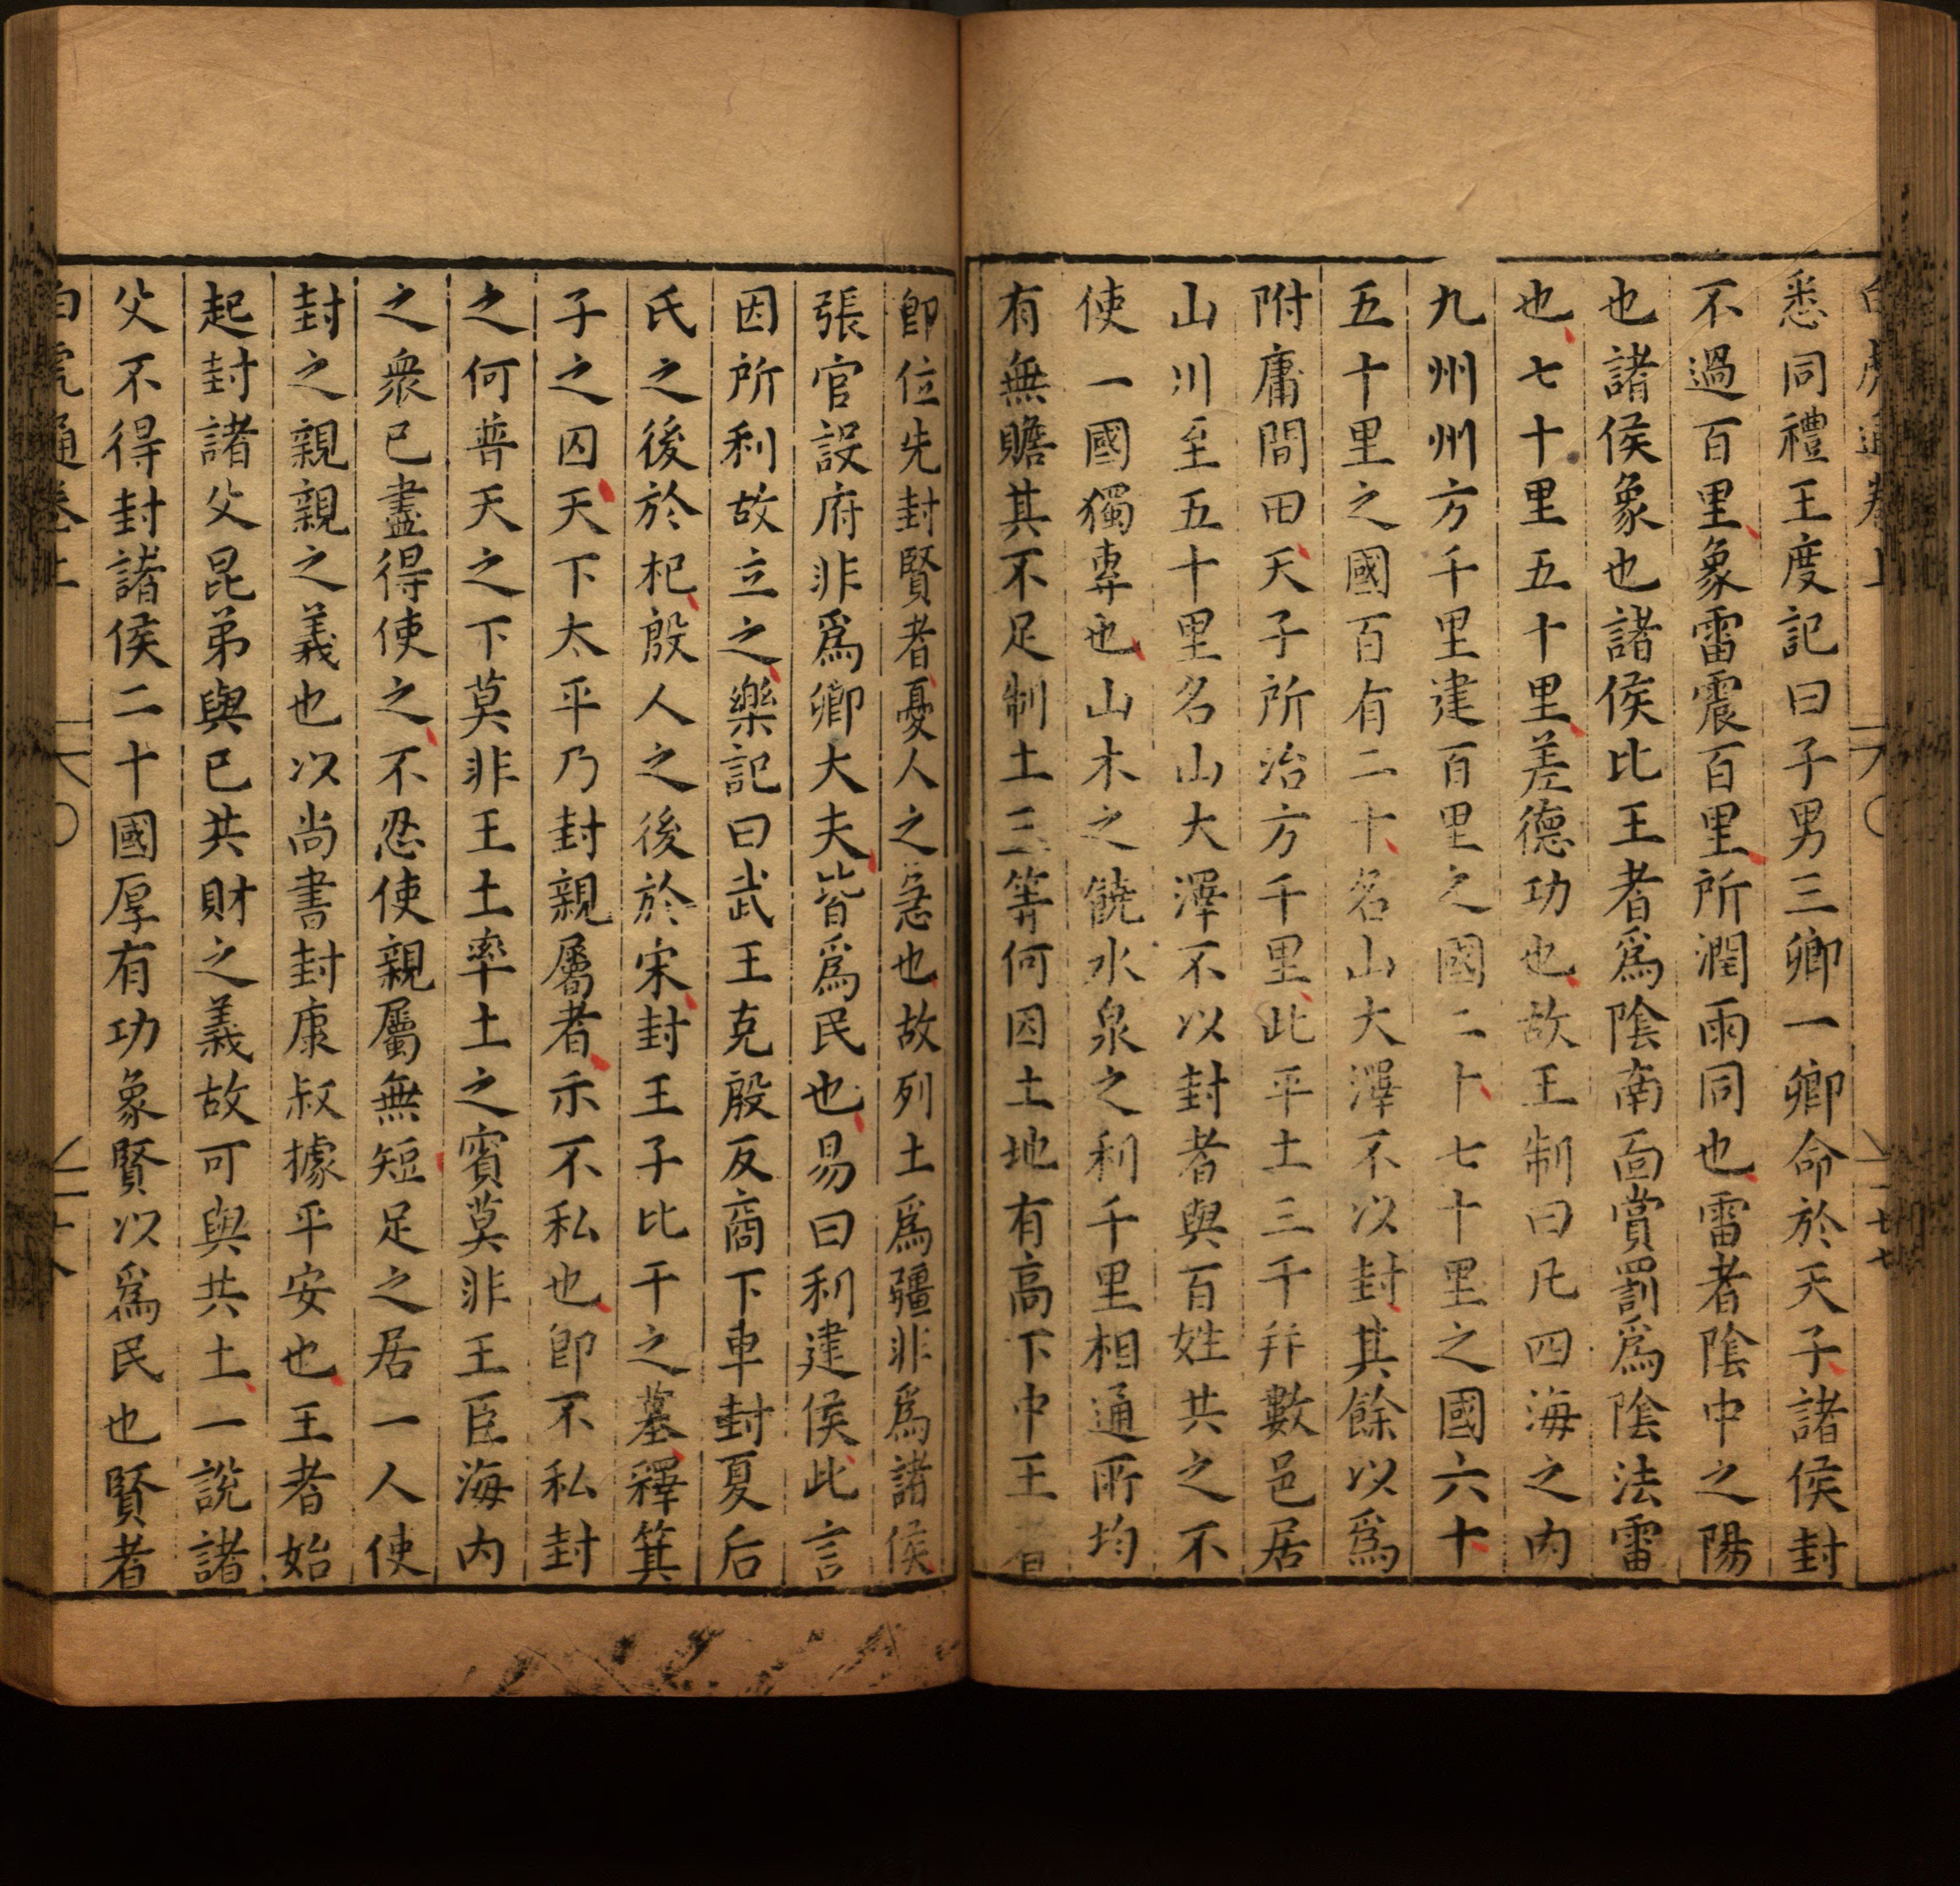 白虎通卷上 十七
悉同禮王度記曰子男三卿一卿命於天子諸侯封
不過百里象雷震百里所潤雨同也雷者陰中之陽
也諸侯象也諸侯比王者爲陰南面賞罰爲陰法雷
也七十里五十里差德功也故王制曰凡四海之内
九州州方千里建百里之國二十七十里之國六十
五十里之國百有二十名山大澤不以封其餘以爲
附庸間田天子所治方千里此平土三千幷數邑居
山川至五十里名山大澤不以封者與百姓共之不
使一國獨專也山木之饒水泉之利千里相通所均
有無贍其不足制土三等何因土地有高下中王者
卽位先封賢者憂人之急也故列土爲疆非爲諸侯
張官設府非爲卿大夫皆爲民也易曰利建侯此言
因所利故立之樂記曰武王克殷反商下車封夏后
氏之後於杞殷人之後於宋封王子比干之墓釋箕
子之囚天下太平乃封親屬者示不私也卽不私封
之何普天之下莫非王土率土之賓莫非王臣海内
之衆已盡得使之不忍使親屬無短足之居一人使
封之親親之義也以尚書封康叔據平安也王者始
起封諸父昆弟與已共財之義故可與共土一說諸
父不得封諸侯二十國厚有功象賢以爲民也賢者
白虎通卷上 十八